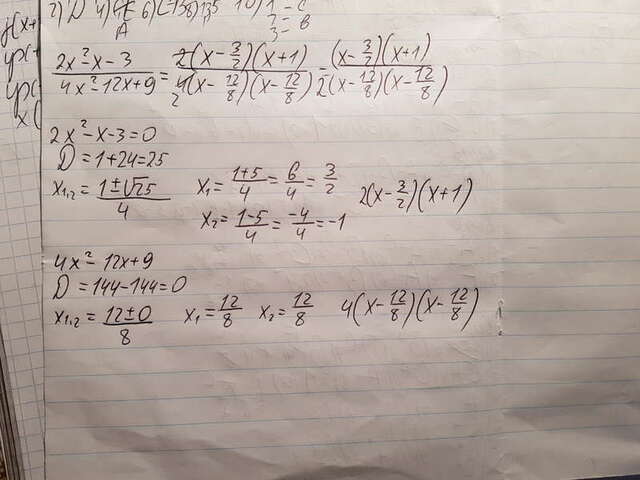 2x²-x-3 / 4x²-12x+9 = 2(x-3/2)(x+1) / 4(x-12/8)(x-12/8) = (x-3/2)(x+1) / 2(x-12/8)(x-12/8)
2x²-x-3=0
D=1+24=25
x₁,₂ = 1±√25 / 4 x₁ = 1+5/4 = 6/4 = 3/2 2(x-3/2)(x+1)
x₂ = 1-5/4 = -4/4 = -1
4x²-12x+9
D=144-144=0
x₁,₂ = 12±0 / 8 x₁ = 12/8 x₂ = 12/8 4(x-12/8)(x-12/8)